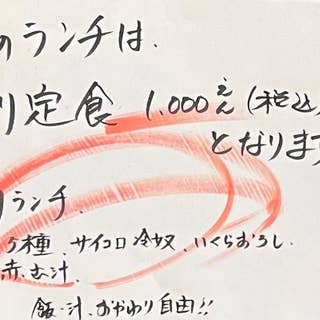 のランチは、
り定食 1,000えん(税込)
となります
ランチ、
5種、サイコロ冷奴、いくらおろし、
赤だし汁
飯・汁、おかわり自由!!